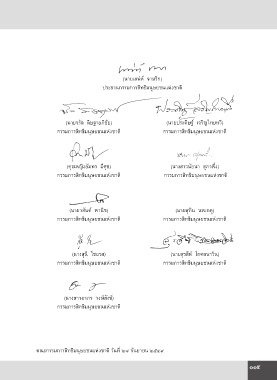 (นายเสน่ห์ จามริก)
ประธานกรรมการสิทธิมนุษยชนแห่งชาติ
(นายจรัล ดิษฐาอภิชัย) (นายประดิษฐ์ เจริญไทยทวี)
กรรมการสิทธิมนุษยชนแห่งชาติ กรรมการสิทธิมนุษยชนแห่งชาติ
(คุณหญิงอัมพร มีศุข) (นางสาวนัยนา สุภาพึ่ง)
กรรมการสิทธิมนุษยชนแห่งชาติ กรรมการสิทธิมนุษยชนแห่งชาติ
(นายวสันต์ พานิช) (นายสุทิน นพเกตุ)
กรรมการสิทธิมนุษยชนแห่งชาติ กรรมการสิทธิมนุษยชนแห่งชาติ
(นางสุนี ไชยรส) (นายสุรสีห์ โกศลนาวิน)
กรรมการสิทธิมนุษยชนแห่งชาติ กรรมการสิทธิมนุษยชนแห่งชาติ
(นางอาภร วงษ์สังข์)
กรรมการสิทธิมนุษยชนแห่งชาติ
คณะกรรมการสิทธิมนุษยชนแห่งชาติ วันที่ ๒๙ กันยายน ๒๕๔๙
๑๐๕